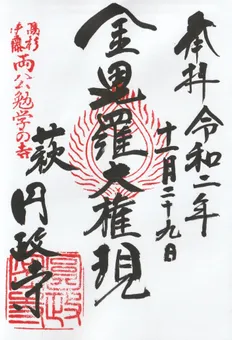 奉拝 令和二年
十一月二十九日
金毘羅大権現
高杉
伊藤
両公勉学の寺
萩 円政寺